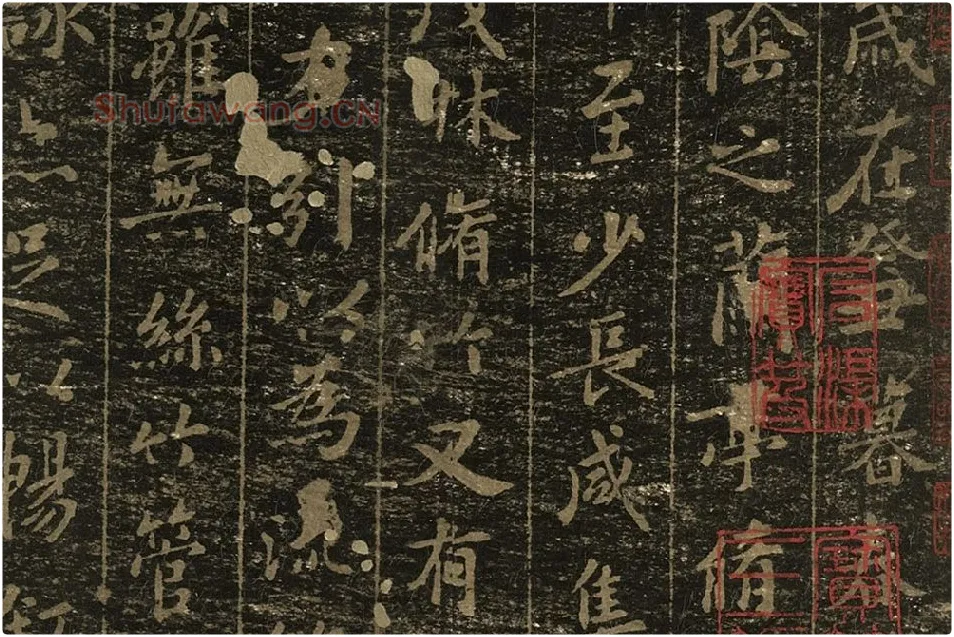 歲在癸丑暮春
陰之蘭亭脩
至少長咸集
茂林脩竹又有
右引以為流
雖無絲竹管
詠亦足以暢敘
Shufawang.CN